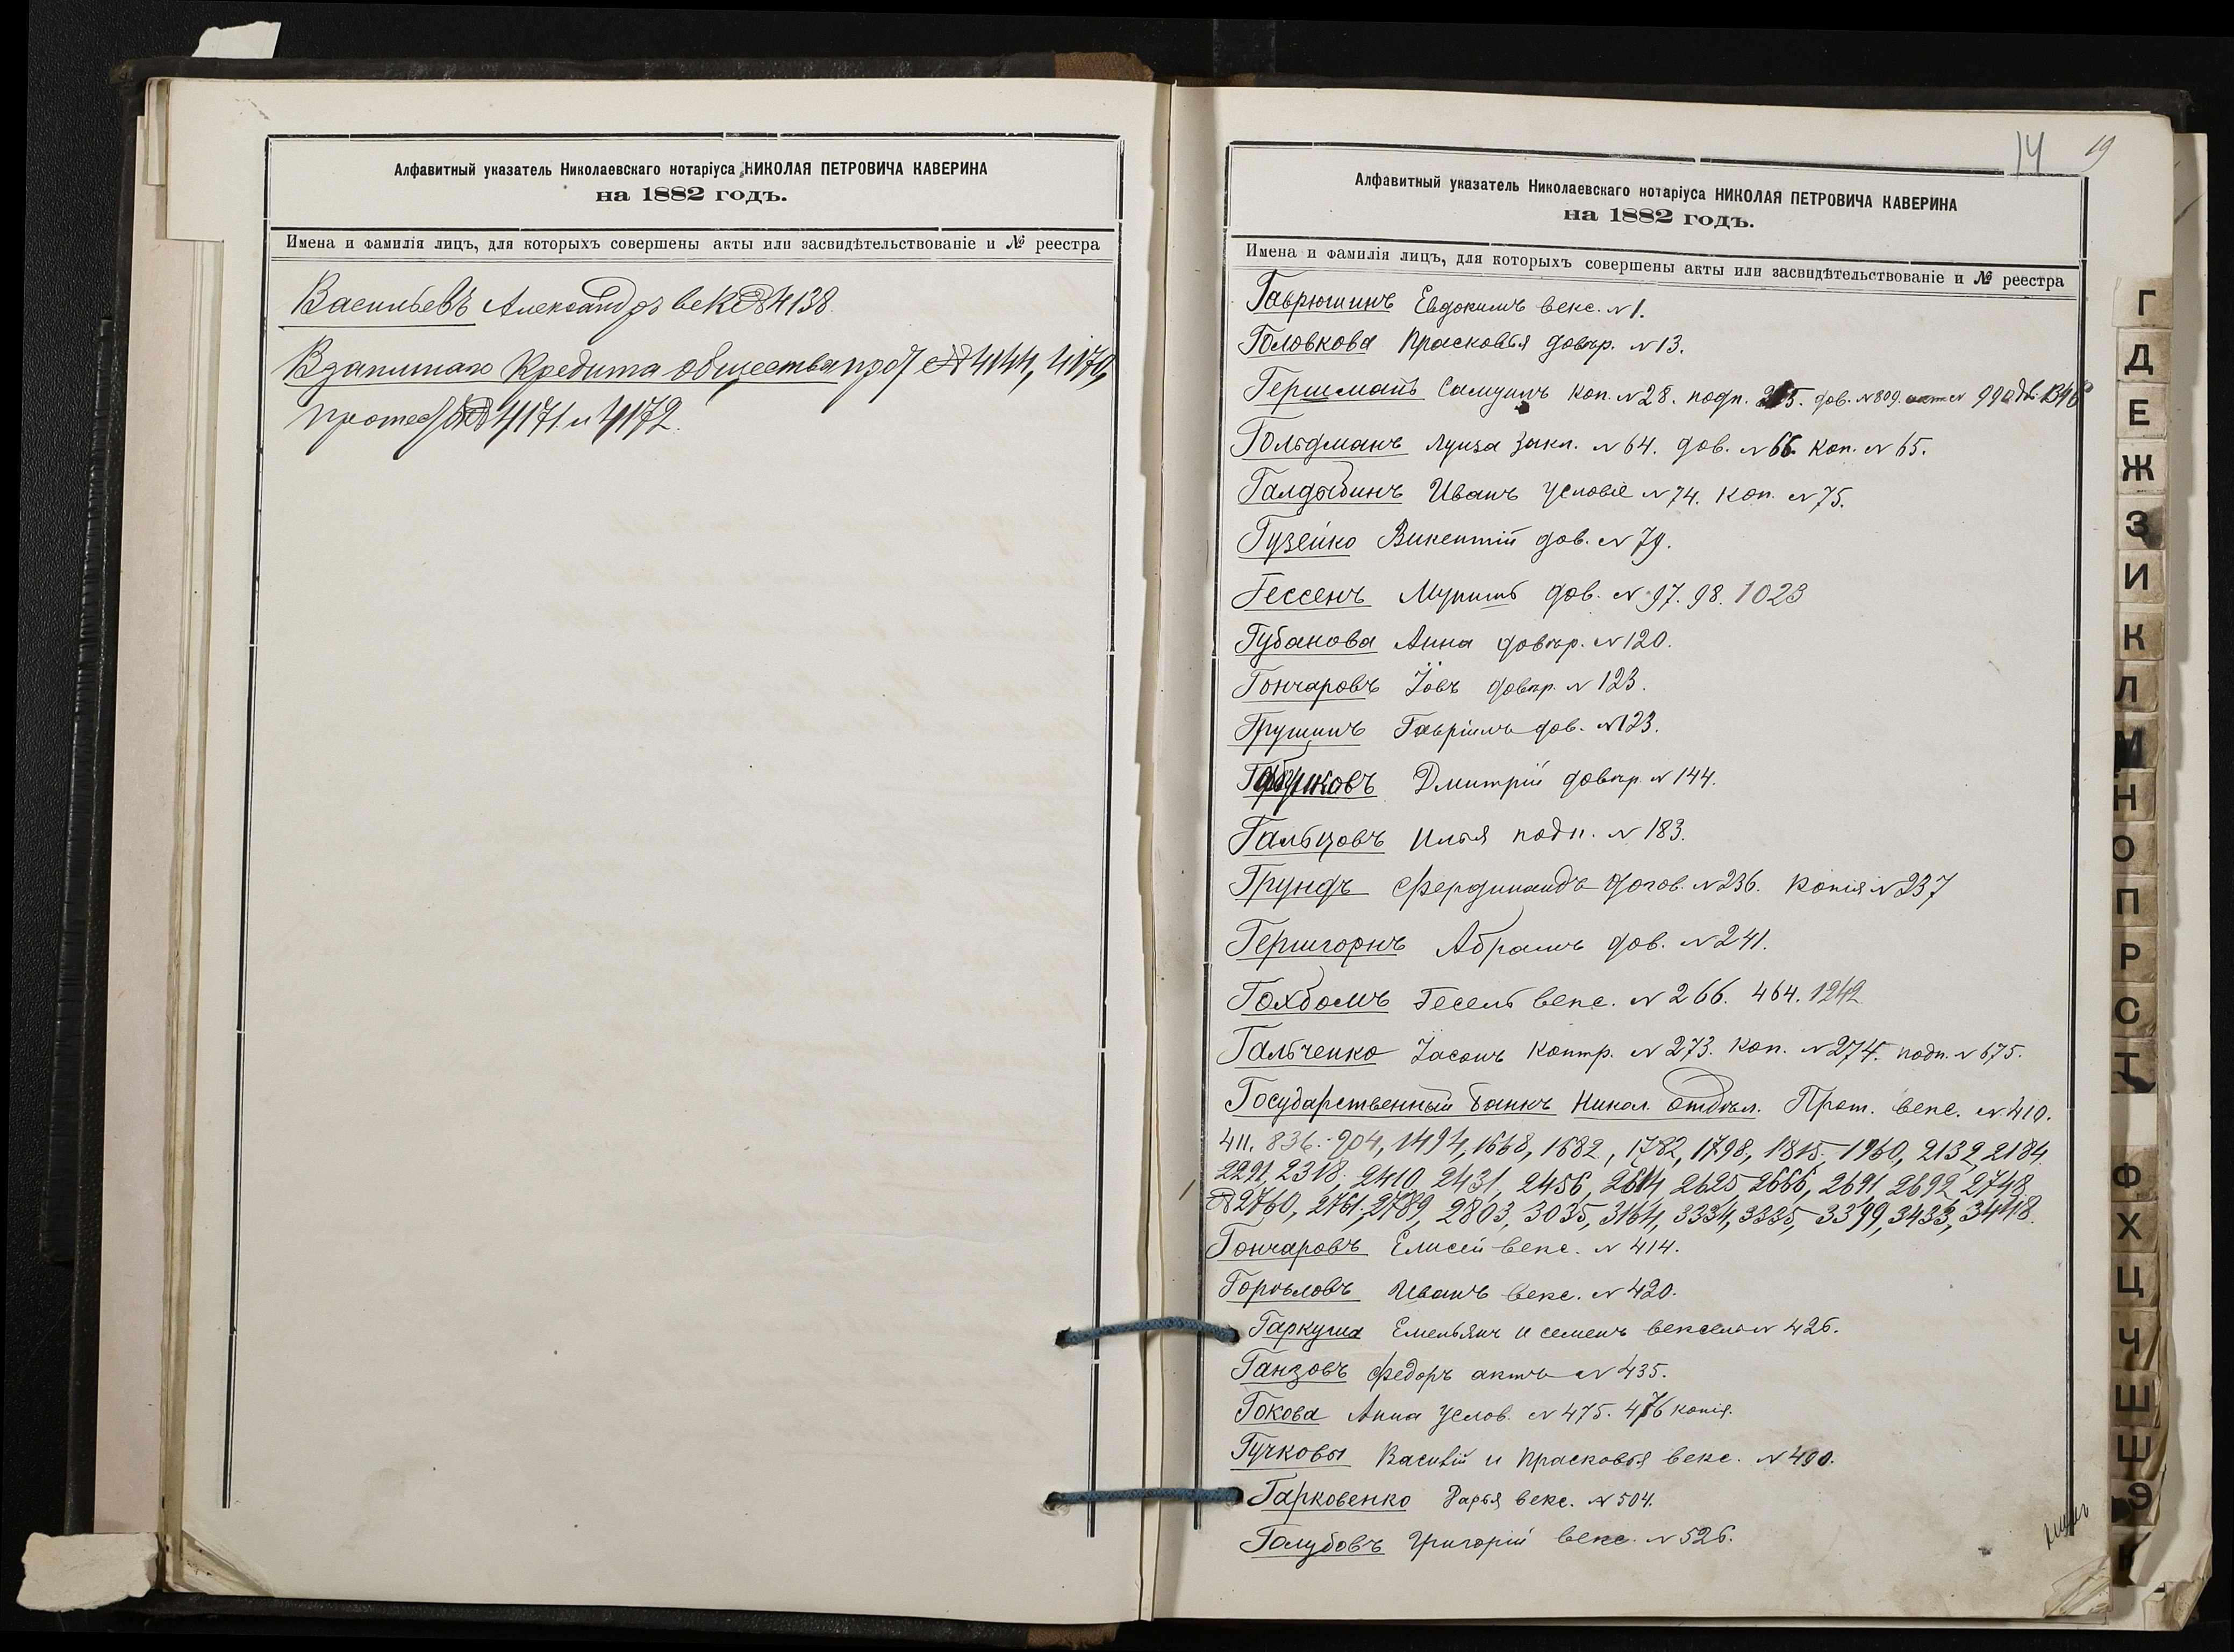 Алфавитный указатель Николаевскаго нотаріуса НИКОЛАЯ ПЕТРОВИЧА КАВЕРИНА
на 1882 годъ.
Имена и фамилія лицъ, для которыхъ совершены акты или засвидѣтельствованіе и № реестра
Васильевъ Александръ век № 4138
Взаимнаго Кредита общества № 4144, 4170,
протес № 4171 и 4172.
14 19
Алфавитный указатель Николаевскаго нотаріуса НИКОЛАЯ ПЕТРОВИЧА КАВЕРИНА
на 1882 годъ.
Имена и фамилія лицъ, для которыхъ совершены акты или засвидѣтельствованіе и № реестра
Гаврюшинъ Евдокимъ векс. № 1.
Головкова Прасковья довѣр. № 13.
Гершманъ Самуилъ коп. № 28. подп. дов. № 809. 990
Гольдманъ Луиза закл. № 64. дов. № 66 коп. № 65.
Галдобинъ Иванъ условіе № 74. коп. № 75.
Гузейко Викентій дов. № 79.
Гессенъ дов. № 97. 98. 1023
Губанова Анна довѣр. № 120.
Гончаровъ Іовъ довѣр. № 123.
Грушинъ Гавріилъ дов. № 123.
Дмитрій довѣр. № 144.
Гальцовъ Илья подп. № 183.
Грундъ Фердинандъ догов. № 236. копія № 237
Гершгорнъ Абрамъ дов. № 241.
Гохбомъ Гесель векс. № 266. 464. 1242
Гальченко Іасонъ контр. № 273. коп. № 274. подп. № 675.
Государственный банкъ Никол. отдѣл. Прот. векс. № 410.
411. 836. 904, 1494, 1668, 1682, 1782, 1798, 1815 1960, 2132, 2184
2291, 2318, 2410 2431, 2456, 2614, 2625, 2666, 2691, 2692, 2748
№ 2760, 2761, 2789, 2803, 3035, 3164, 3334, 3335, 3399, 3433, 3448.
Гончаровъ Елисей векс. № 414.
Горѣловъ Иванъ векс. № 420.
Гаркуша Емельянъ и Семенъ вексель № 426.
Ганзовъ Федоръ актъ № 435.
Гокова Анна услов. № 475. 476 копія.
Гучковы Василій и Прасковья векс. № 490.
Гарковенко Дарья векс. № 504.
Голубовъ Григорій векс. № 526.
Г
Д
Е
Ж
З
И
К
Л
М
Н
О
П
Р
С
Т
Ф
Х
Ц
Ч
Ш
Щ
Э